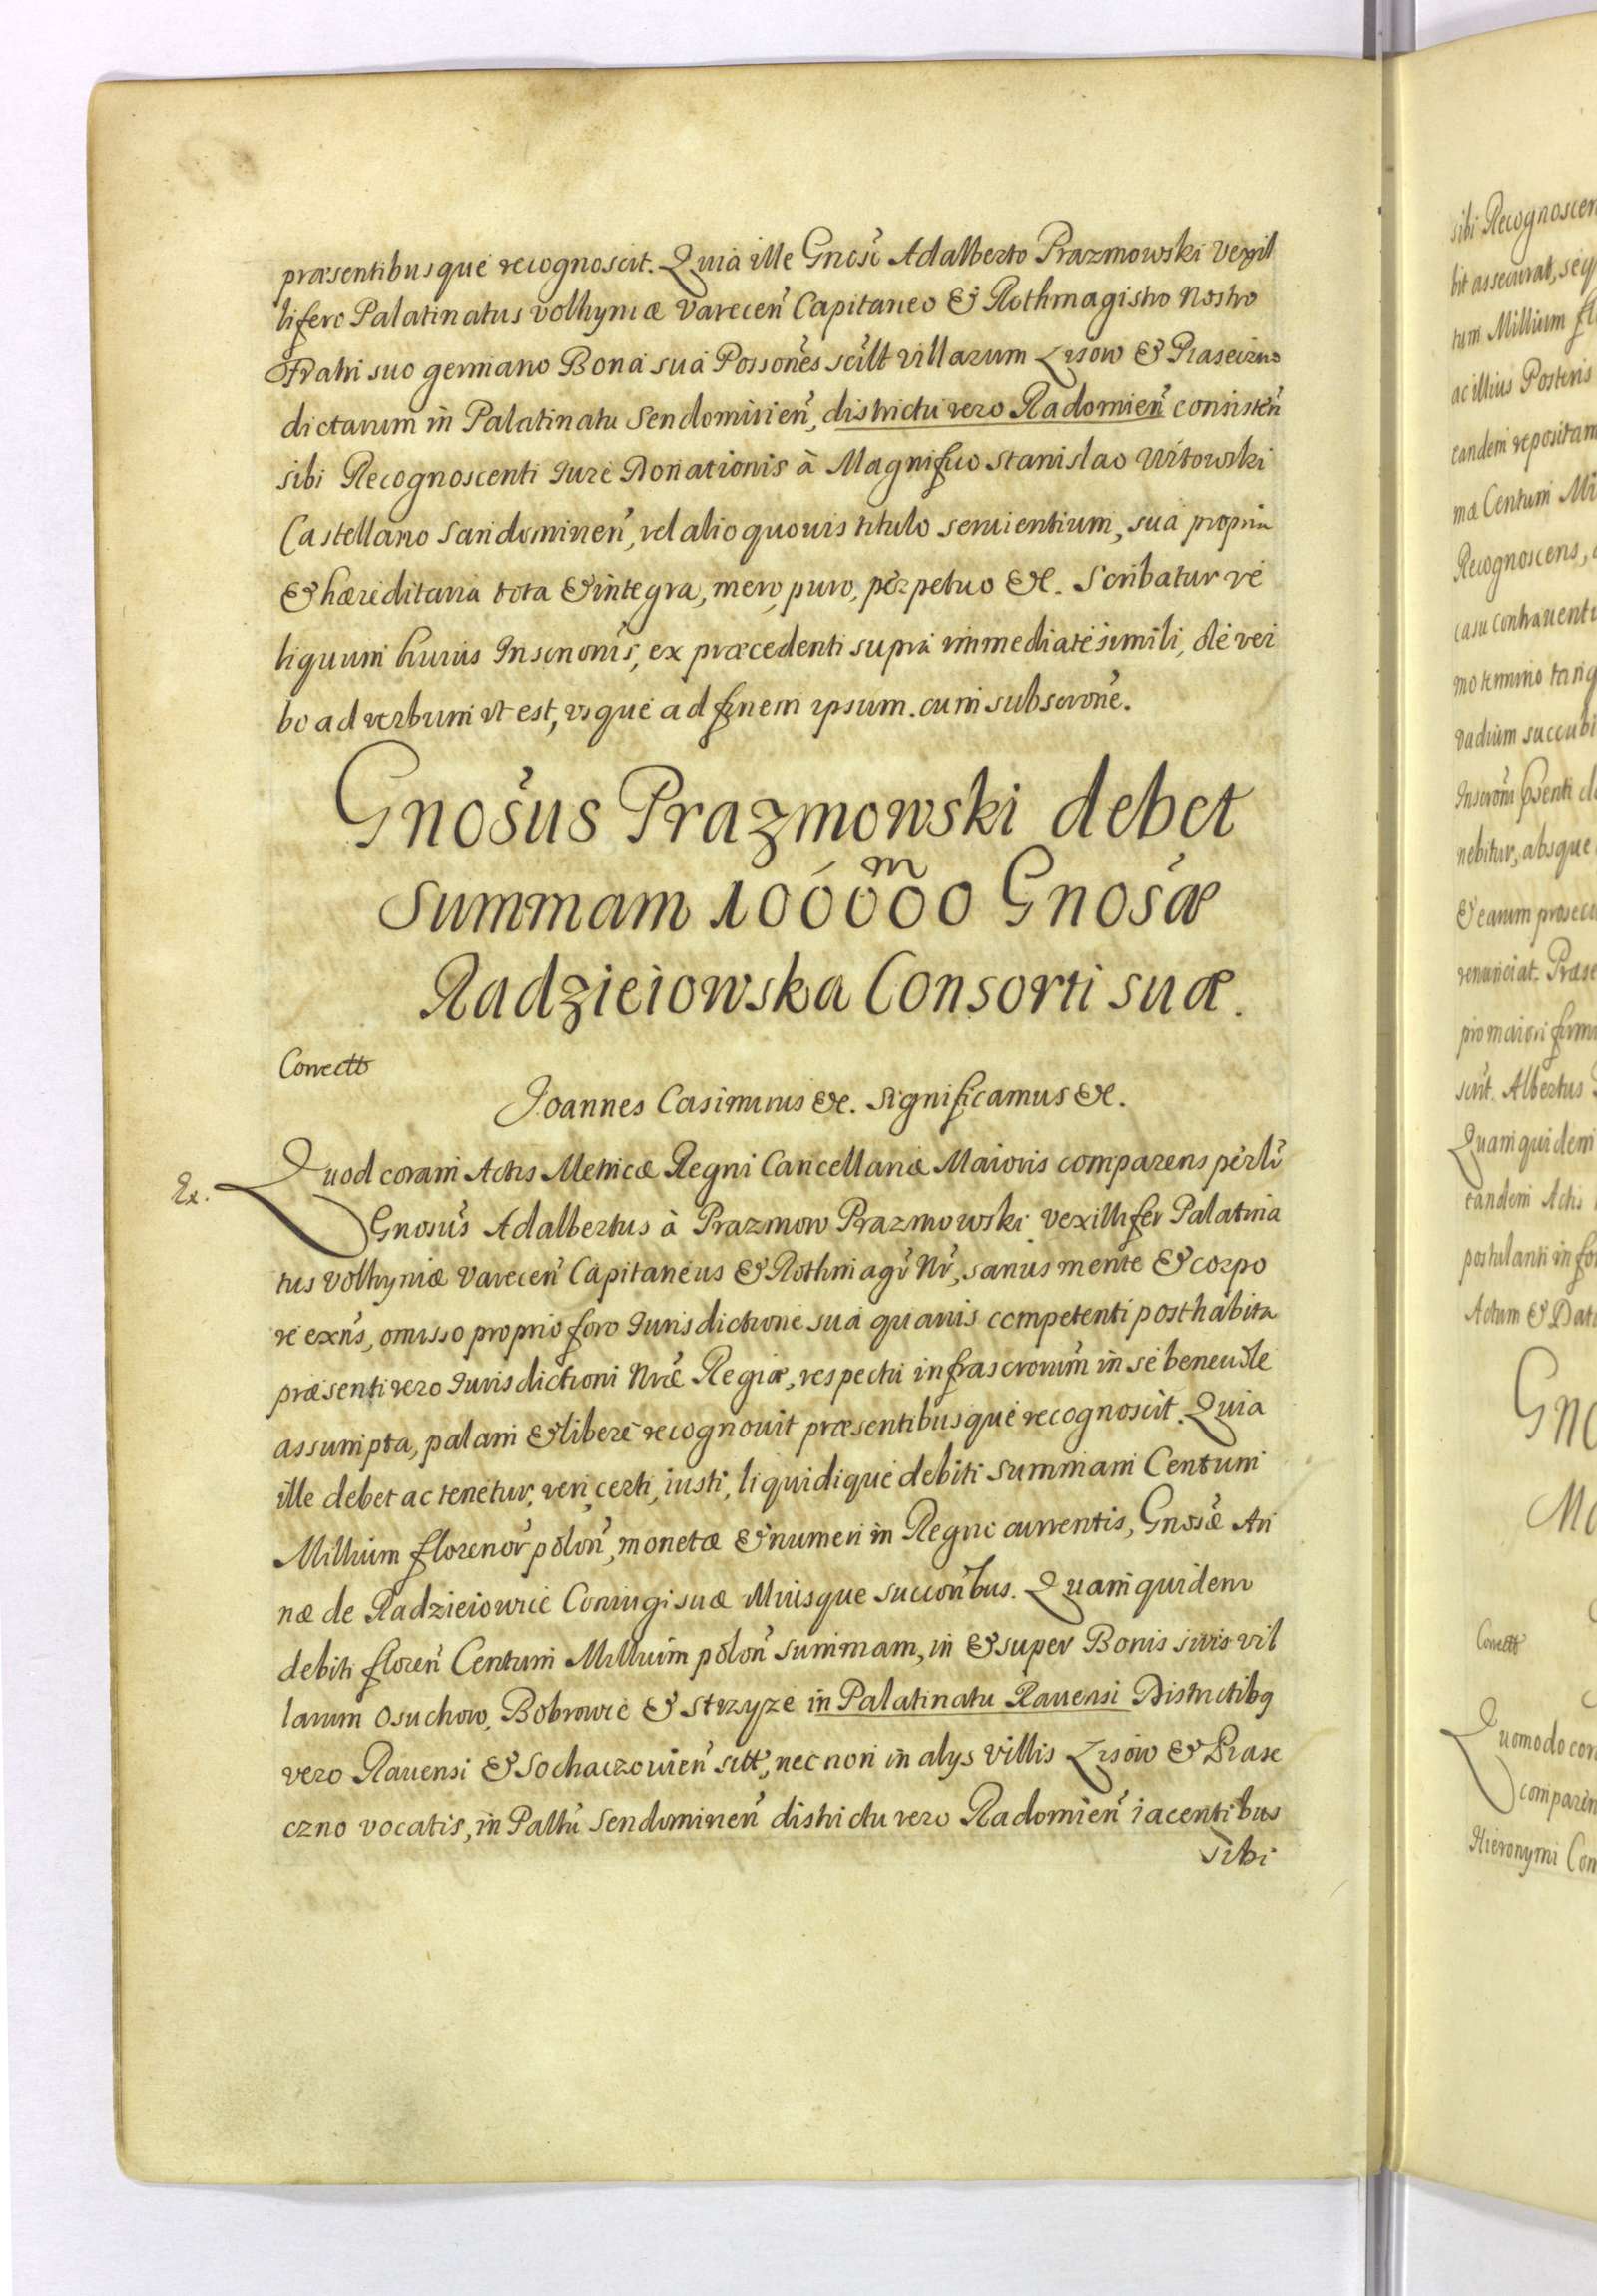 præsentibusque recognoscit. Quia ille Gnoso Adalberto Prazmowski Vexil
lifero Palatinatus Volhyniæ Varecen̄ Capitaneo & Rothmagistro Nostro
Fratri suo germano Bona sua Possones scilt villarum Lisow & Piaseczno
dictarum in Palatinatu Sendomirien̄, districtu vero Radomien̄ consisten̄
sibi Recognoscenti Iure Donationis à Magnifico Stanislao Witowski
Castellano Sandomirien̄, vel alio quovis titulo servientium, sua propria
& hæreditaria tota & integra, mero, puro, perpetuo &c. Scribatur re
liquum huius Inscrionis, ex præcedenti supra immediate simili, de ver
bo ad verbum ut est, usque ad finem ipsum. cum subscrone.
Gnosus Prazmowski debet
summam 100000 m Gnosæ
Radzieiowska Consorti suæ.
Correctt
Joannes Casimirus &c. Significamus &c.
Ex.
Quod coram Actis Metricæ Regni Cancellariæ Maioris comparens perslr
Gnosus Adalbertus à Prazmow Prazmowski Vexillifer Palatina
tus Volhyniæ Varecen̄ Capitaneus & Rothmagr Nr, sanus mente & corpo
re exns, omisso proprio foro Iurisdictione sua quavis competenti posthabita
præsenti vero Iurisdictioni Nræ Regiæ, respectu infrascrorum in se benevole
assumpta, palam & libere recognovit præsentibusque recognoscit. Quia
ille debet ac tenetur, veri, certi, iusti, liquidique debiti summam Centum
Millium florenor polon̄, monetæ & numeri in Regno currentis, Gnosæ An
næ de Radzieiowic Coniugi suæ Illiusque succoribus. Quam quidem
debiti floren̄ Centum Millium polon̄ summam, in & super Bonis suis vil
larum Osuchow, Bobrowce & Strzyze in Palatinatu Ravensi Districtibq
vero Ravensi & Sochaczovien̄ sitt, nec non in alys villis Lisow & Piase
czno vocatis, in Pallu Sendomirien̄ districtu vero Radomien̄ iacentibus
Sibi